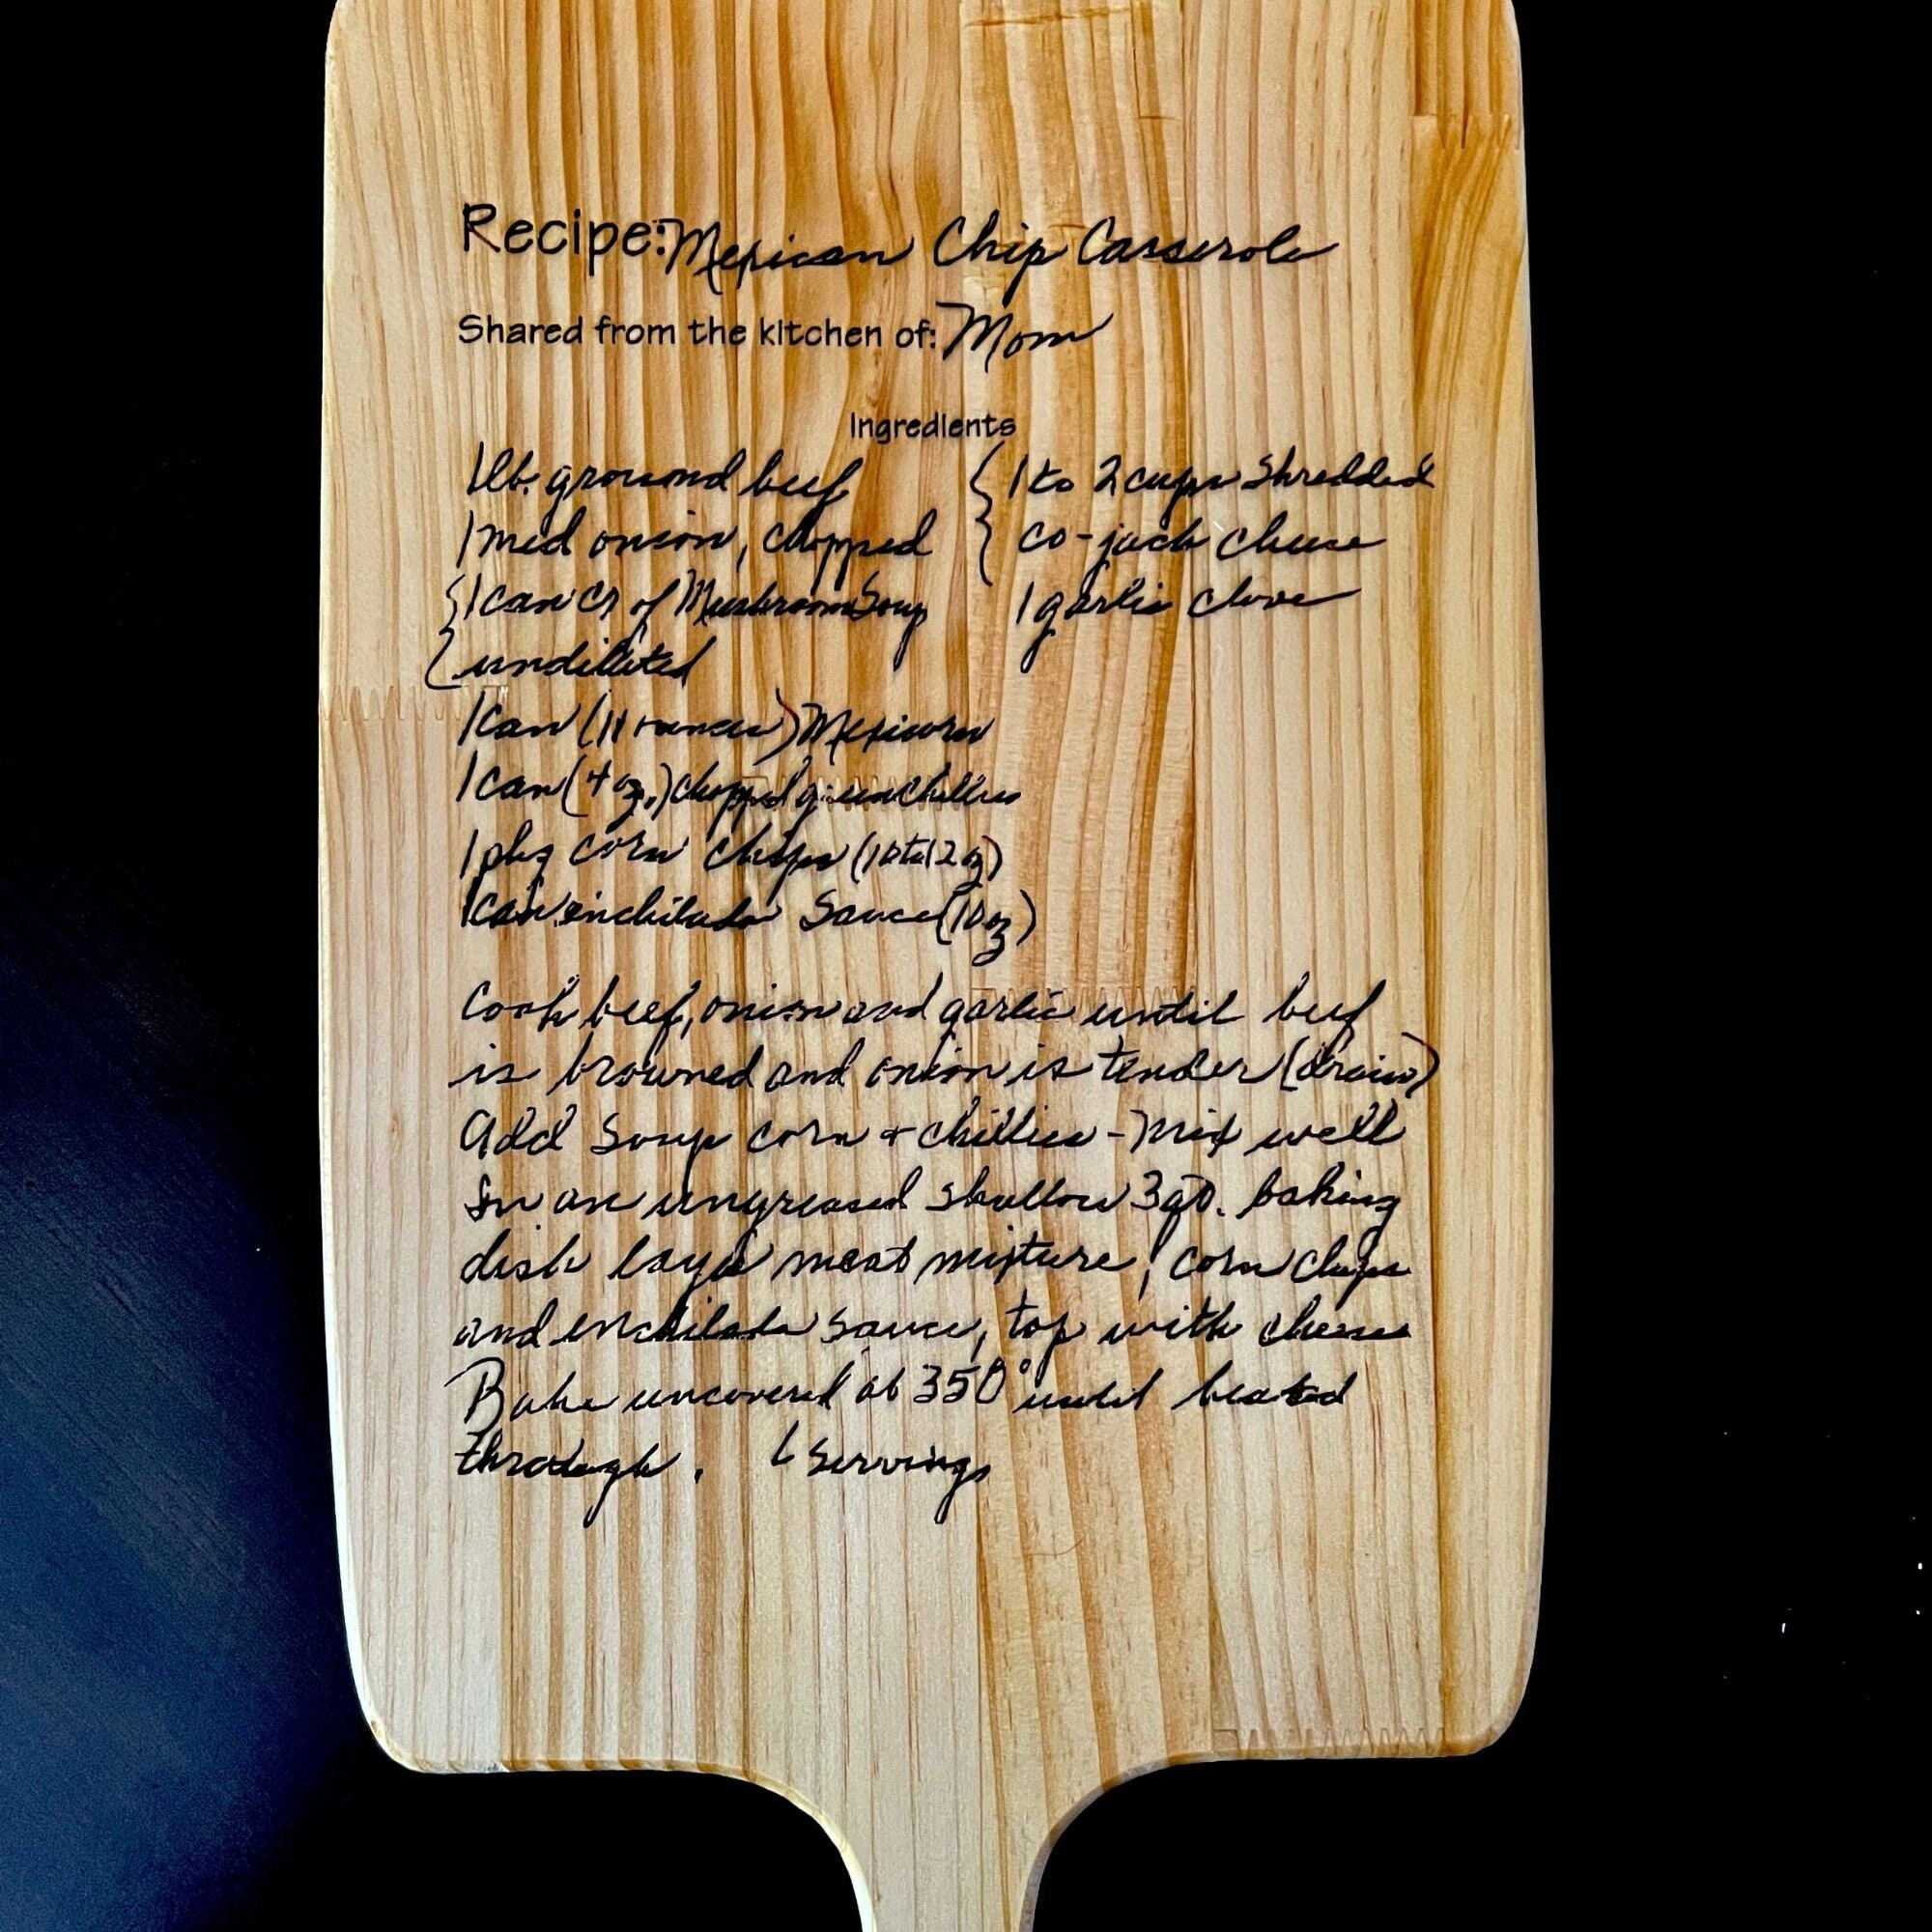 Recipe: Mexican Chip Casserole
Shared from the kitchen of: Mom
Ingredients
1 lb. ground beef
1 med onion, chopped
1 can cr of Mushroom Soup
undiluted
1 can (11 ounces) Mexicorn
1 can (4 oz.) chopped green chillies
1 pkg corn chips (10 to 12 oz)
1 can enchilada sauce (10 oz)
1 to 2 cups shredded
co-jack cheese
1 garlic clove
Cook beef, onion and garlic until beef
is browned and onion is tender (drain)
Add soup corn + chillies - Mix well
In an ungreased shallow 3 qt. baking
dish layer meat mixture, corn chips
and enchilada sauce, top with cheese
Bake uncovered at 350° until heated
through. 6 servings